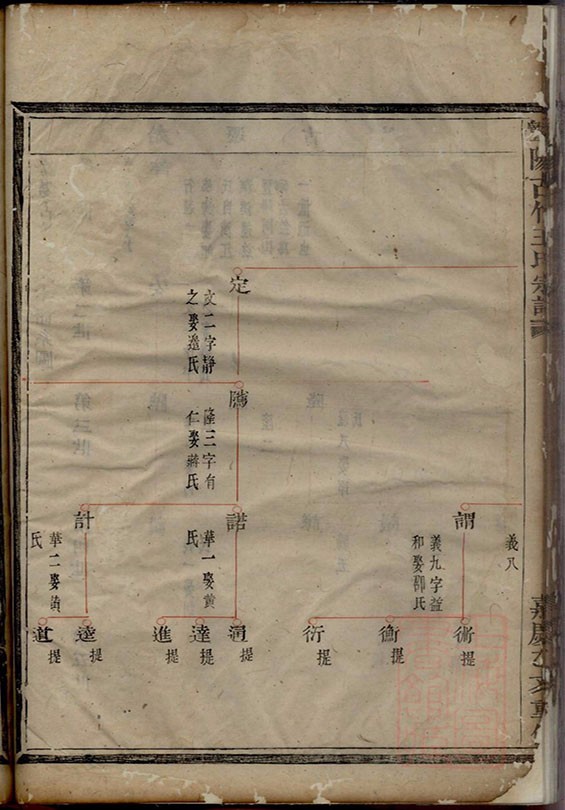 陽古竹王氏宗譜
嘉慶乙亥重修
定
文二字靜
之娶邉氏
隆三字有
仁娶蔣氏
義八
謂
義九字益
和娶柳氏
諾
華一娶黄
氏
計
華二娶黄
氏
術
提
衡
提
衍
提
提
達
提
進
提
逵
提
提